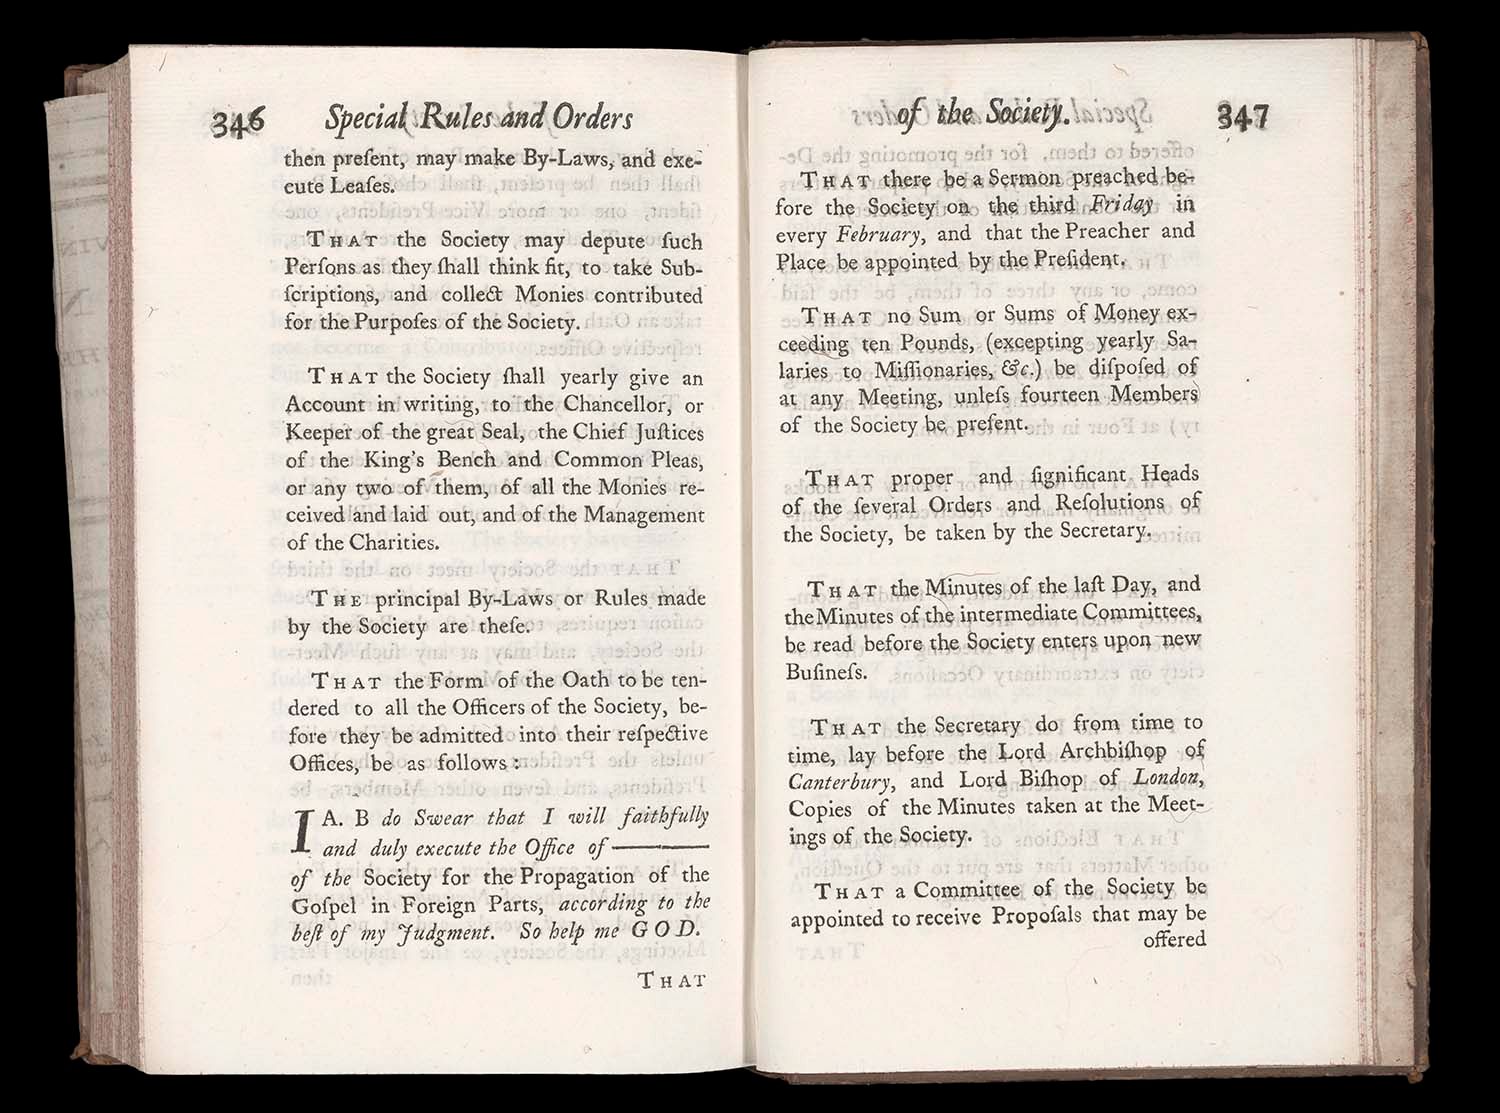 346 Special Rules and Orders
then preſent, may make By-Laws, and exe-
cute Leaſes.
THAT the Society may depute ſuch
Perſons as they ſhall think fit, to take Sub-
ſcriptions, and collect Monies contributed
for the Purpoſes of the Society.
THAT the Society ſhall yearly give an
Account in writing, to the Chancellor, or
Keeper of the great Seal, the Chief Juſtices
of the King's Bench and Common Pleas,
or any two of them, of all the Monies re-
ceived and laid out, and of the Management
of the Charities.
THE principal By-Laws or Rules made
by the Society are theſe.
THAT the Form of the Oath to be ten-
dered to all the Officers of the Society, be-
fore they be admitted into their reſpective
Offices, be as follows:
I A. B do Swear that I will faithfully
and duly execute the Office of ———
of the Society for the Propagation of the
Goſpel in Foreign Parts, according to the
beſt of my Judgment. So help me GOD.
THAT
of the Society. 347
THAT there be a Sermon preached be-
fore the Society on the third Friday in
every February, and that the Preacher and
Place be appointed by the Preſident.
THAT no Sum or Sums of Money ex-
ceeding ten Pounds, (excepting yearly Sa-
laries to Miſſionaries, &c.) be diſpoſed of
at any Meeting, unleſs fourteen Members
of the Society be preſent.
THAT proper and ſignificant Heads
of the ſeveral Orders and Reſolutions of
the Society, be taken by the Secretary.
THAT the Minutes of the laſt Day, and
the Minutes of the intermediate Committees,
be read before the Society enters upon new
Buſineſs.
THAT the Secretary do from time to
time, lay before the Lord Archbiſhop of
Canterbury, and Lord Biſhop of London,
Copies of the Minutes taken at the Meet-
ings of the Society.
THAT a Committee of the Society be
appointed to receive Propoſals that may be
offered